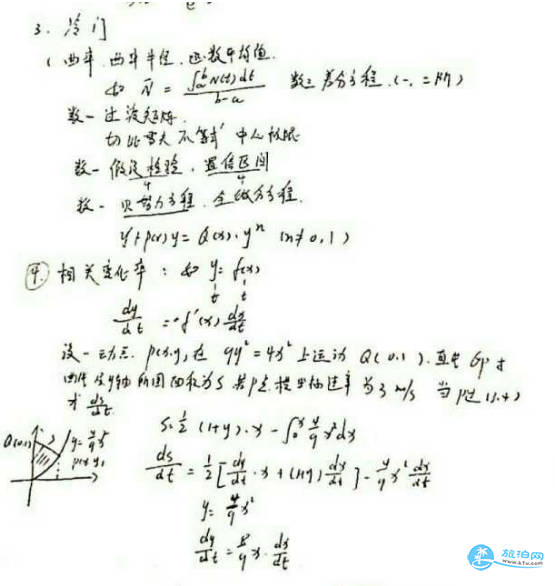 3. 冷门
(曲率.曲率半径.函数平均值.
如 N̄ = ∫ₐᵇN(t)dt / (b-a) 数三 差分方程.(一,二阶)
数一 过渡矩阵.
切比雪夫不等式 中心极限
数一 假设检验,置信区间
4 4
数一.贝努力方程.全微分方程.
y'+p(x)y = Q(x)·yⁿ (n≠0,1)
④.相关变化率:如 y = f(x)
t t
dy/dt = f'(x) dx/dt
设一动点 p(x,y)在 9y²=4x² 上运动 Q(0.1).直线 Qp 与
曲线及y轴所围面积为S 若P点 横坐标速率为3 m/s 当P过(3,4)
求 ds/dt
S=½(1+y)·x - ∫₀ˣ 4/9 x²dx
Q(0,1) y=4/9x²
p(x,y)
ds/dt = ½[dy/dt·x+(1+y)dx/dt] - 4/9x² dx/dt
y=4/9x²
dy/dt = 8/9x·dx/dt
旅泊网
www.k1u.com